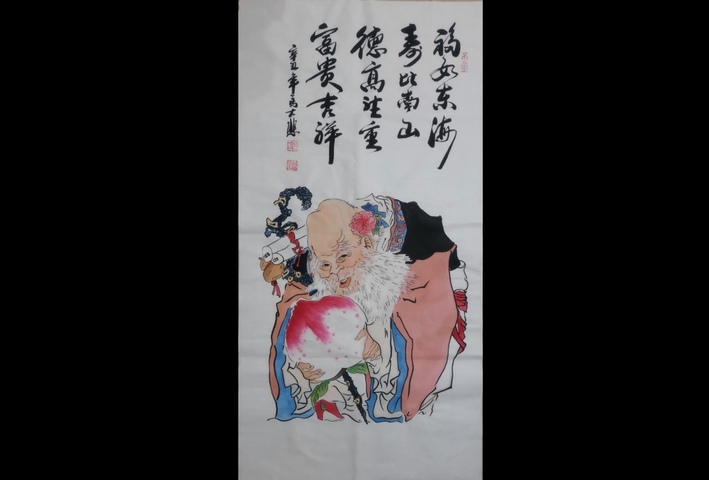 福如东海
寿比南山
德高望重
富贵吉祥
辛丑年